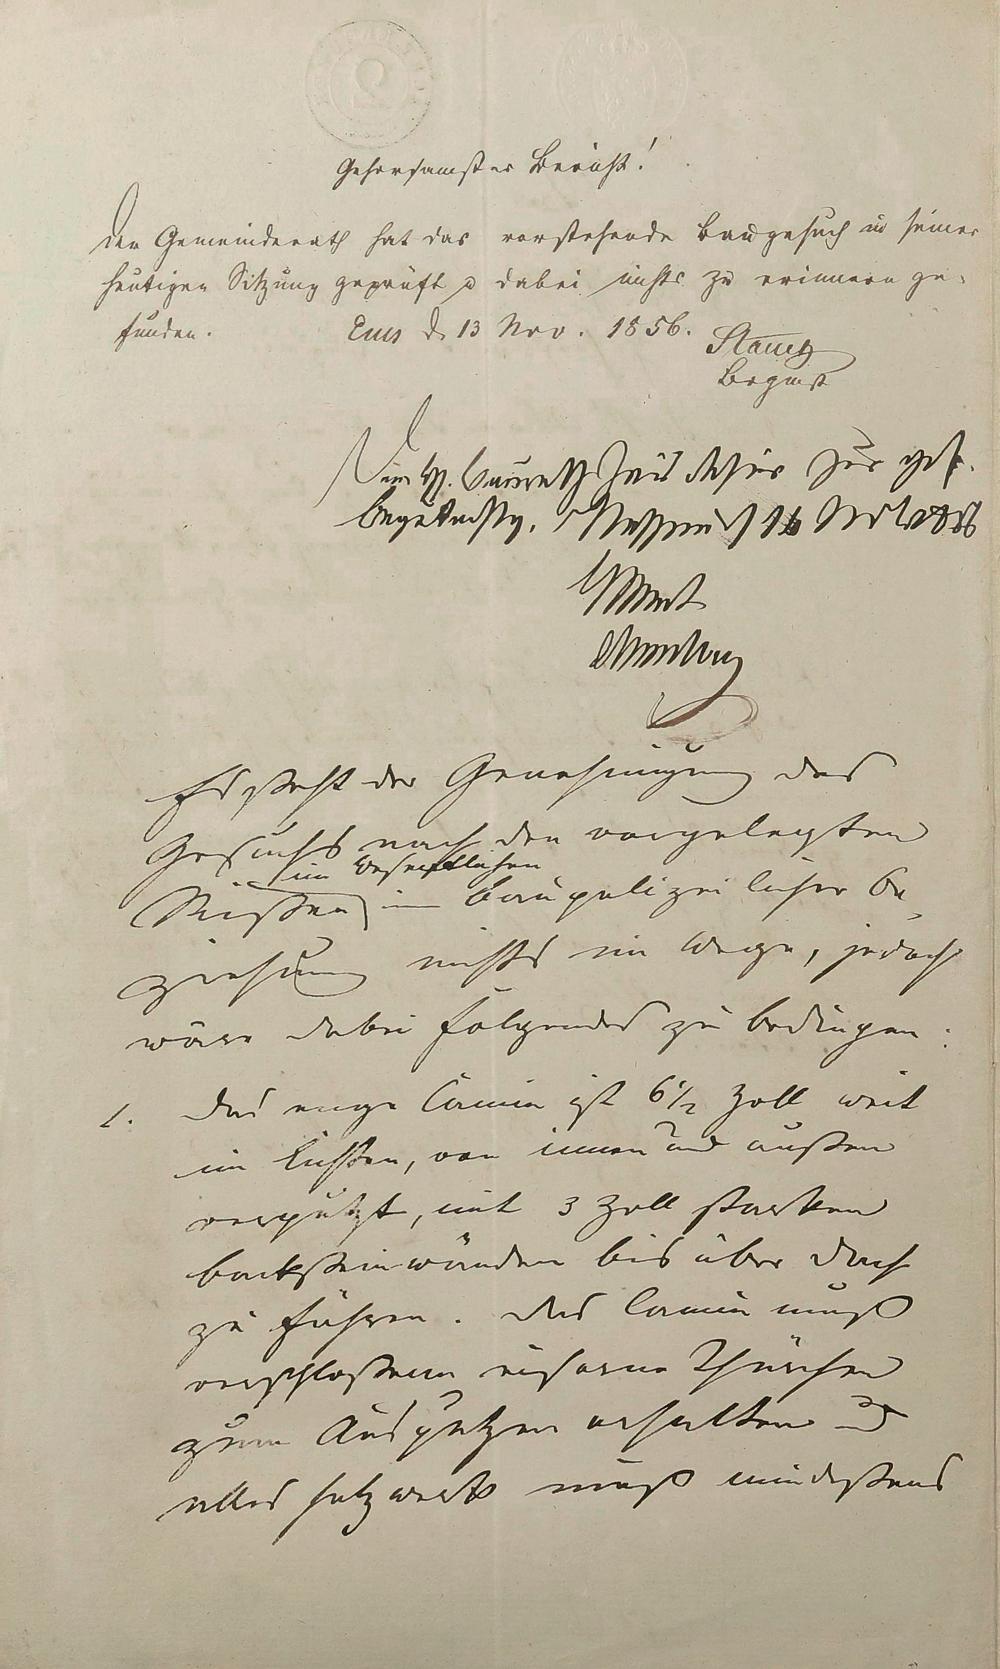 Gehorsamster Bericht!
Der Gemeinderath hat das vorstehende Baugesuch in seiner
heutigen Sitzung geprüft u dabei nichts zu erinnern ge-
funden. Ems d. 13 Nov. 1856.
Brgmst
Dem H. Baurath zur gef.
Begutachtg. Nassau d 16 Novbr 1856
Es steht der Genehmigung des
Gesuchs nach den vorgelegten
im Wesentlichen
Rissen in baupolizeilicher Be-
ziehung nichts im Wege, jedoch
wäre dabei folgendes zu bedingen:
1. Das enge Camin ist 6 1/2 Zoll weit
im Lichten, von innen und außen
verputzt, mit 3 Zoll starken
Backsteinwänden bis über Dach
zu führen. Das Camin muß
verschloßene eiserne Thürchen
zum Ausputzen erhalten und
alles Holzwerk muß mindestens